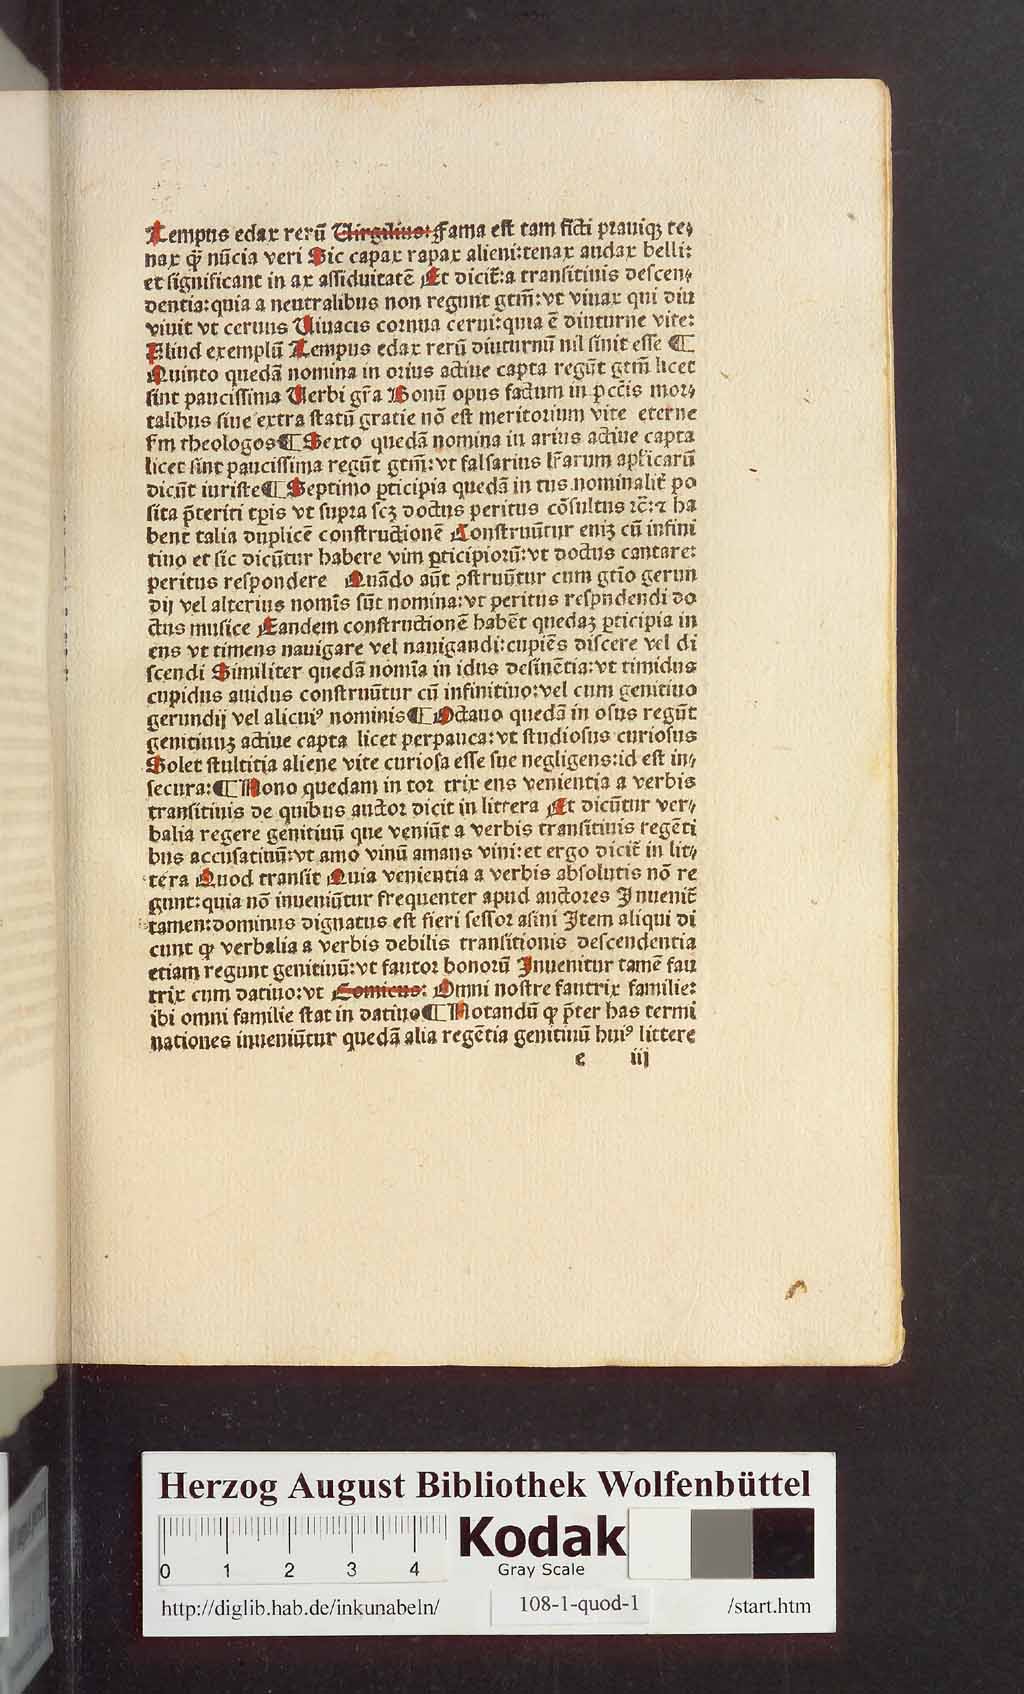 Tempus edax rerū Virgilius: Fama est tam ficti prauiqꝫ te⸗
nax qꝫ nūcia veri Sic capax rapax alieni: tenax audax belli:
et significant in ax assiduitatē Et dicit̄: a transitiuis descen⸗
dentia: quia a neutralibus non regunt gtm̄: vt viuax qui diu
viuit vt ceruus Viuacis cornua cerui: quia ē diuturne vite:
Aliud exemplū Tempus edax rerū diuturnū nil sinit esse ¶
Quinto quedā nomina in orius actiue capta regūt gtm̄ licet
sint paucissima Verbi gr̄a Bonū opus factum in pcc̄is mor⸗
talibus siue extra statū gratie nō est meritorium vite eterne
fm theologos ¶ Sexto quedā nomina in arius actiue capta
licet sint paucissima regūt gtm̄: vt falsarius lr̄arum apl̄icarū
dicūt iuriste ¶ Septimo ꝑticipia quedā in tus nominalit̄ po
sita p̄teriti tp̄is vt supra scꝫ doctus peritus cōsultus ⁊c̄: ⁊ ha
bent talia duplicē constructionē Construūtur eniꝫ cū infini
tiuo et sic dicūtur habere vim ꝑticipiorū: vt doctus cantare:
peritus respondere Quādo aūt ꝯstruūtur cum gtīo gerun
dij vel alterius nomīs sūt nomina: vt peritus respndendi do
ctus musice Eandem constructionē habēt quedaꝫ ꝑticipia in
ens vt timens nauigare vel nauigandi: cupiēs discere vel di
scendi Similiter quedā nomīa in idus desinētia: vt timidus
cupidus auidus construūtur cū infinitiuo: vel cum genitiuo
gerundij vel alicuiꝰ nominis ¶ Octauo quedā in osus regūt
genitiuuꝫ actiue capta licet perpauca: vt studiosus curiosus
Solet stultitia aliene vite curiosa esse sue negligens: id est in⸗
secura: ¶ Nono quedam in tor trix ens venientia a verbis
transitiuis de quibus auctor dicit in littera Et dicūtur ver⸗
balia regere genitiuū que veniūt a verbis transitiuis regēti
bus accusatiuū: vt amo vinū amans vini: et ergo dicit̄ in lit⸗
tera Quod transit Quia venientia a verbis absolutis nō re
gunt: quia nō inueniūtur frequenter apud auctores Inuenit̄
tamen: dominus dignatus est fieri sessor asini Item aliqui di
cunt ꝙ verbalia a verbis debilis transitionis descendentia
etiam regunt genitiuū: vt fautor bonorū Inuenitur tamē fau
trix cum datiuo: vt Comicus: Omni nostre fautrix familie:
ibi omni familie stat in datiuo ¶ Notandū ꝙ p̄ter has termi
nationes inueniūtur quedā alia regētia genitiuū huiꝰ littere
e iij
Herzog August Bibliothek Wolfenbüttel
Kodak
Gray Scale
0 1 2 3 4
http://diglib.hab.de/inkunabeln/ 108-1-quod-1 /start.htm